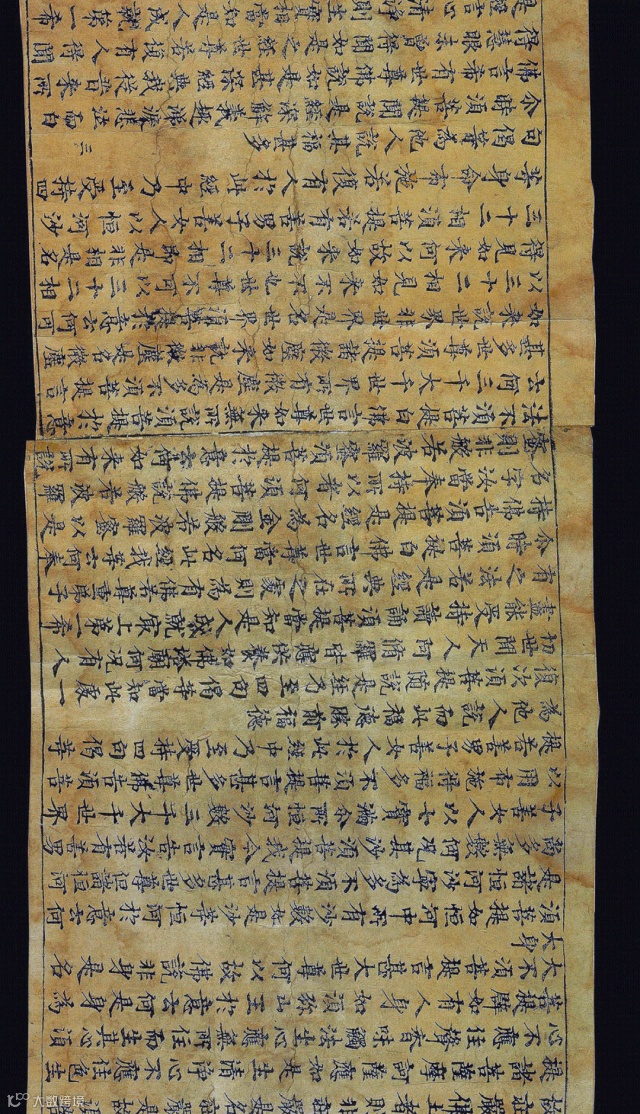 提諸菩薩摩訶薩應如是生清淨心不應住色生
心不應住聲香味觸法生心應無所住而生其心須
菩提譬如有人身如須弥山王於意云何是身為
大不須菩提言甚大世尊何以故佛說非身是名
大身
須菩提如恒河中所有沙數如是沙等恒河於意云何
是諸恒河沙寧為多不須菩提言甚多世尊但諸恒河
尚多無數何況其沙須菩提我今實言告汝若有善男
子善女人以七寶滿尒所恒河沙數三千大千世界
以用布施得福多不須菩提言甚多世尊佛告須菩
提若善男子善女人於此經中乃至受持四句偈等
為他人說而此福德勝前福德
復次須菩提隨說是經乃至四句偈等當知此處一
切世間天人阿脩羅皆應供養如佛塔廟何況有人
盡能受持讀誦須菩提當知是人成就最上第一希
有之法若是經典所在之處則為有佛若尊重弟子
尒時須菩提白佛言世尊當何名此經我等云何奉
持佛告須菩提是經名為金剛般若波羅蜜以是
名字汝當奉持所以者何須菩提佛說般若波羅
蜜則非般若波羅蜜須菩提於意云何如來有所說
法不須菩提白佛言世尊如來無所說須菩提於意
云何三千大千世界所有微塵是為多不須菩提言
甚多世尊須菩提諸微塵如來說非微塵是名微塵
如來說世界非世界是名世界須菩提於意云何可
以三十二相見如來不不也世尊不可以三十二相
得見如來何以故如來說三十二相即是非相是名
三十二相須菩提若有善男子善女人以恒河沙
等身命布施若復有人於此經中乃至受持四
句偈等為他人說其福甚多
三
尒時須菩提聞說是經深解義趣涕淚悲泣而白
佛言希有世尊佛說如是甚深經典我從昔來所
得慧眼未曾得聞如是之經世尊若復有人得聞
是經信心清淨則生實相當知是人成就第一希
大數跨境